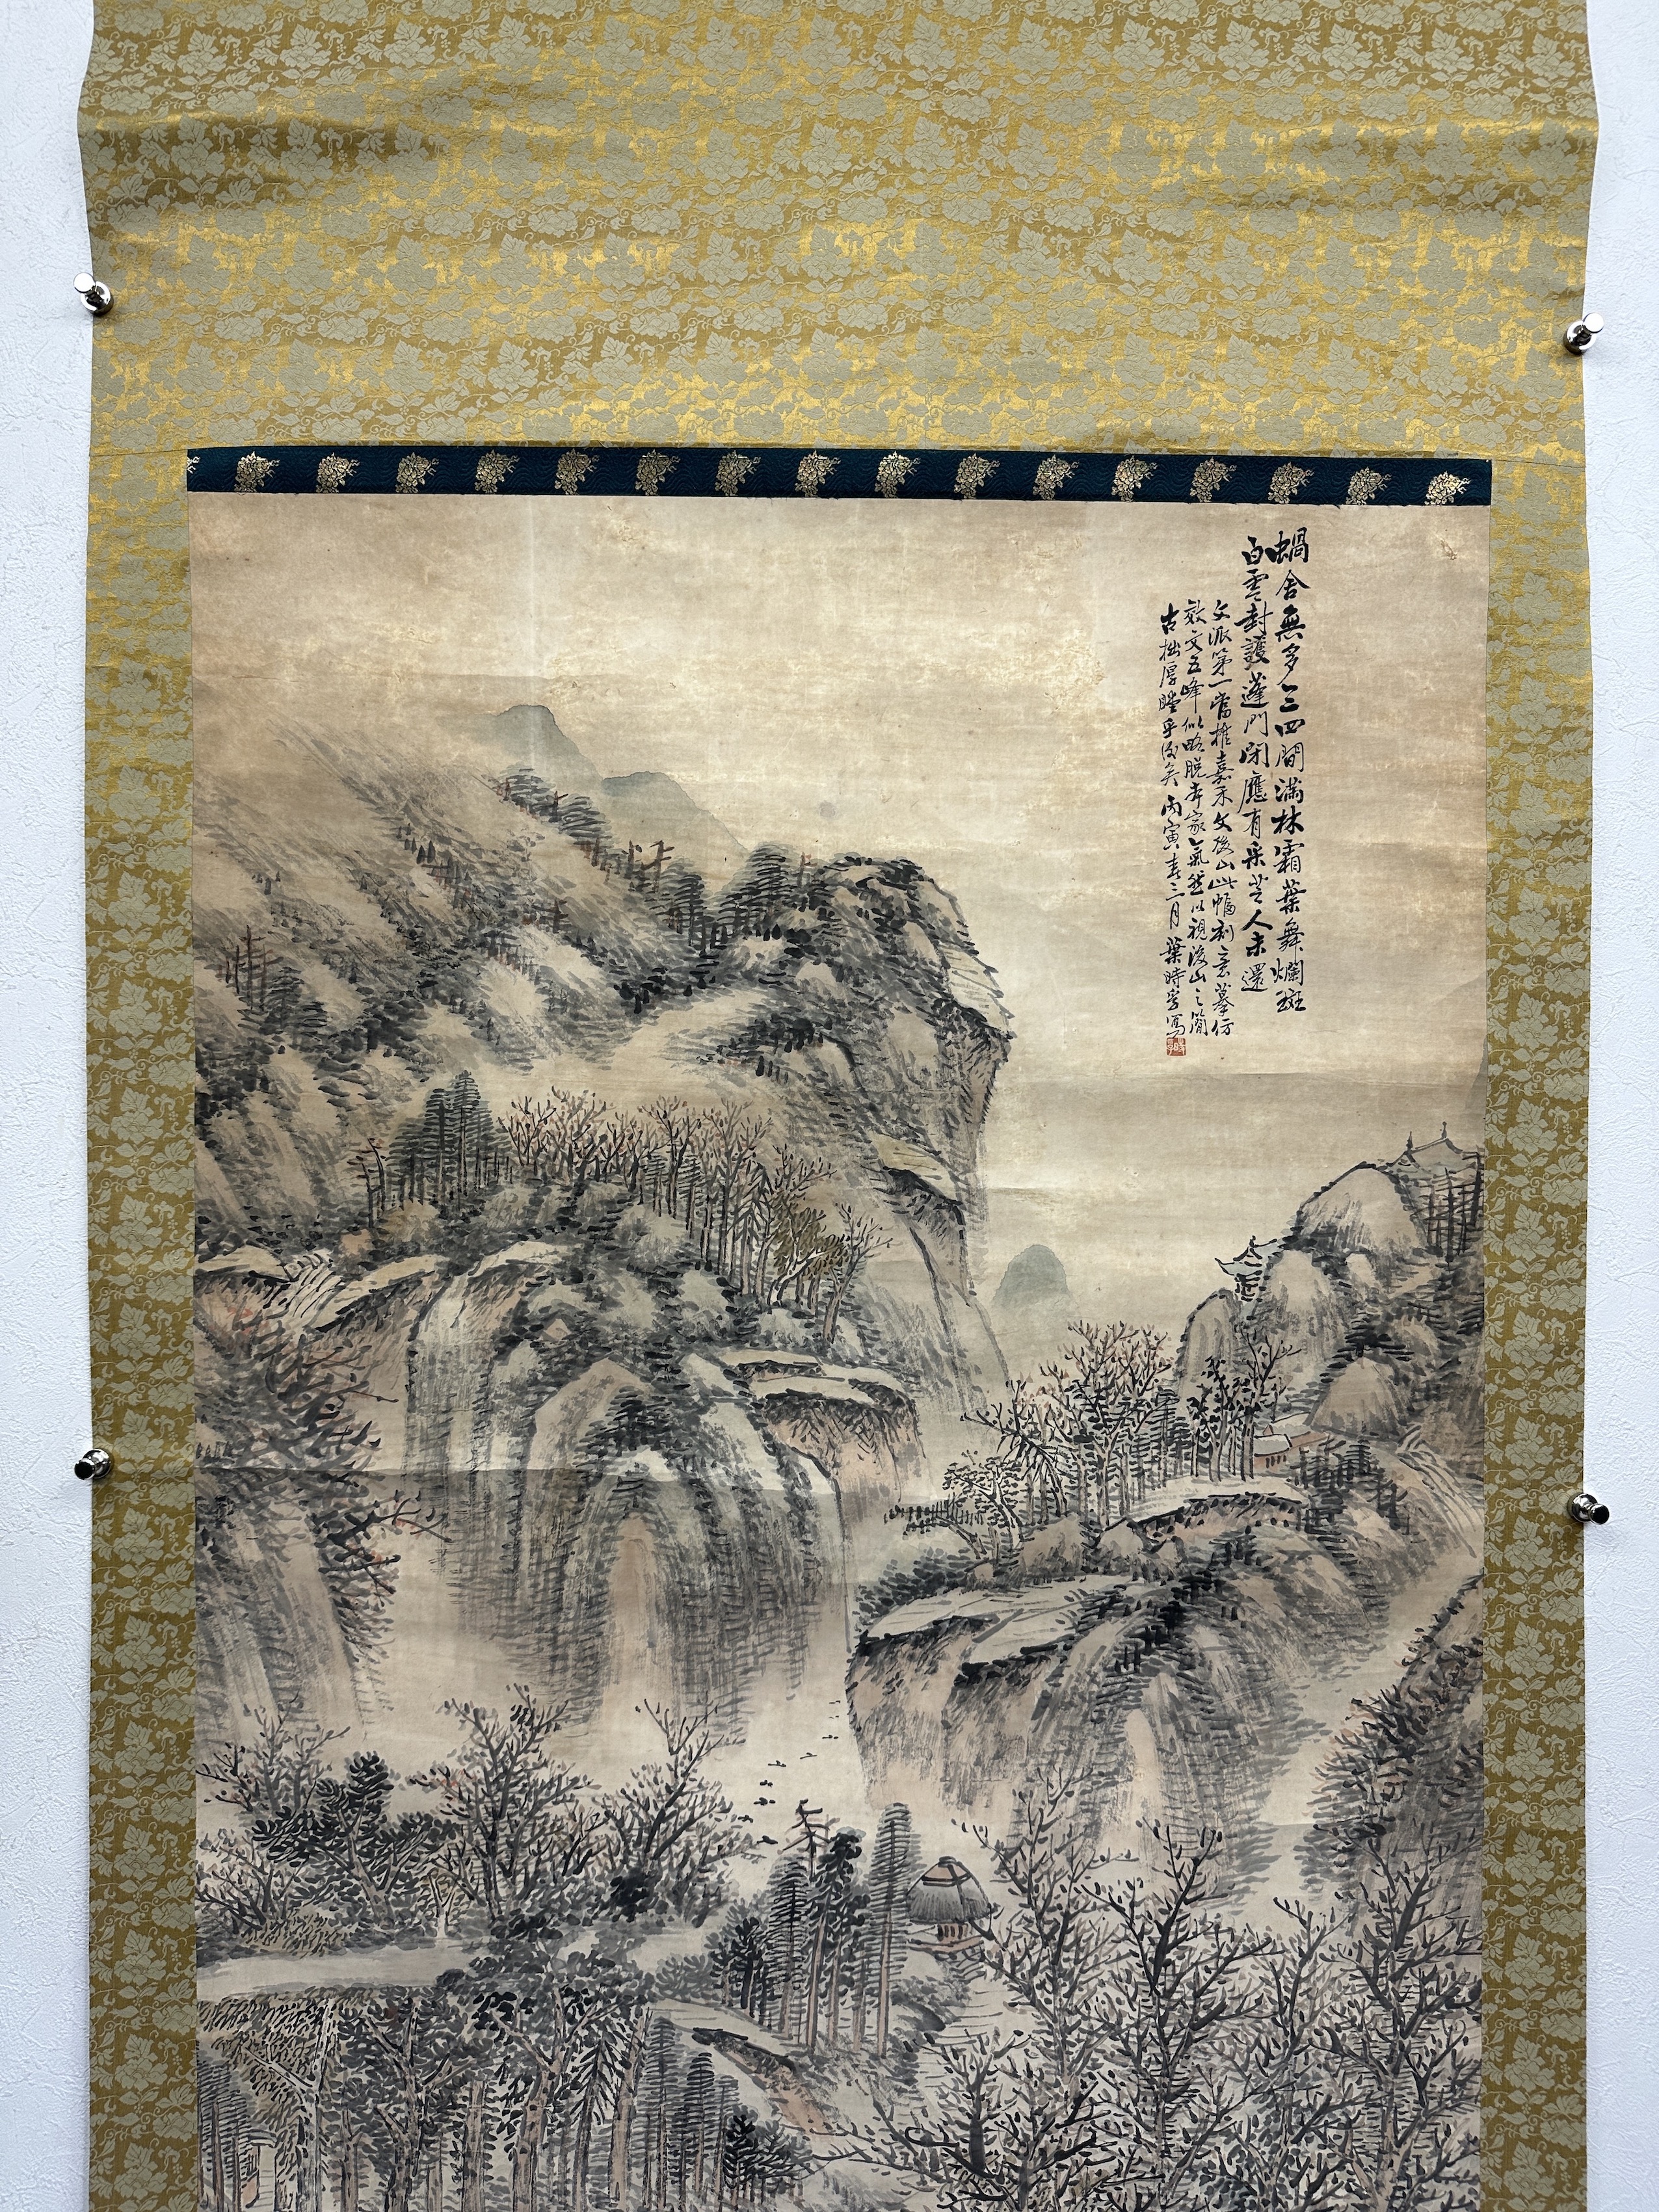 蝸舍無多三四間滿林霜葉舞斕斑
白雲封護蓬門閉應有采芝人未還
文派第一當推嘉禾文後山此幅刻意摹仿
效文五峰似略脫本家氣然以視後山之簡
古拙厚瞠乎後矣丙寅春三月葉時孚寫